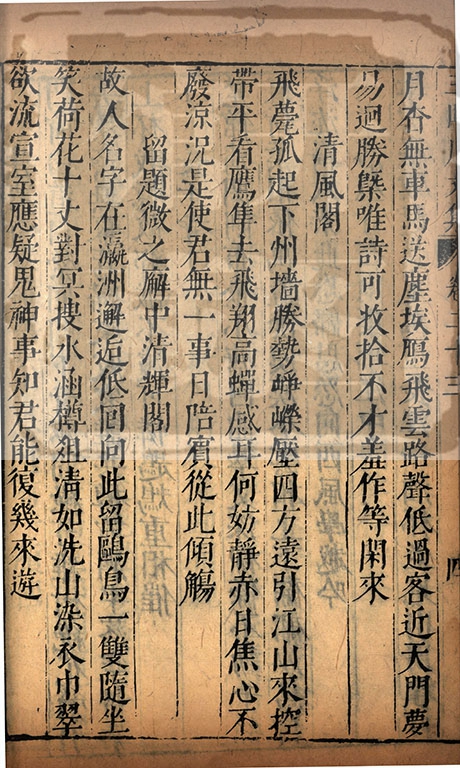 文集 卷二十三 四
月杳無車馬送塵埃鴈飛雲路聲低過客近天門夢
易迴勝槩唯詩可收拾不才羞作等閑來
清風閣
飛甍孤起下州墻勝勢崢嶸壓四方遠引江山來控
帶平看鷹隼去飛翔高蟬感耳何妨靜赤日焦心不
廢涼況是使君無一事日陪賓從此傾觴
留題微之廨中清輝閣
故人名字在瀛洲邂逅低回向此留鷗鳥一雙隨坐
笑荷花十丈對冥搜水涵樽俎清如洗山染衣巾翠
欲流宣室應疑鬼神事知君能復幾來遊